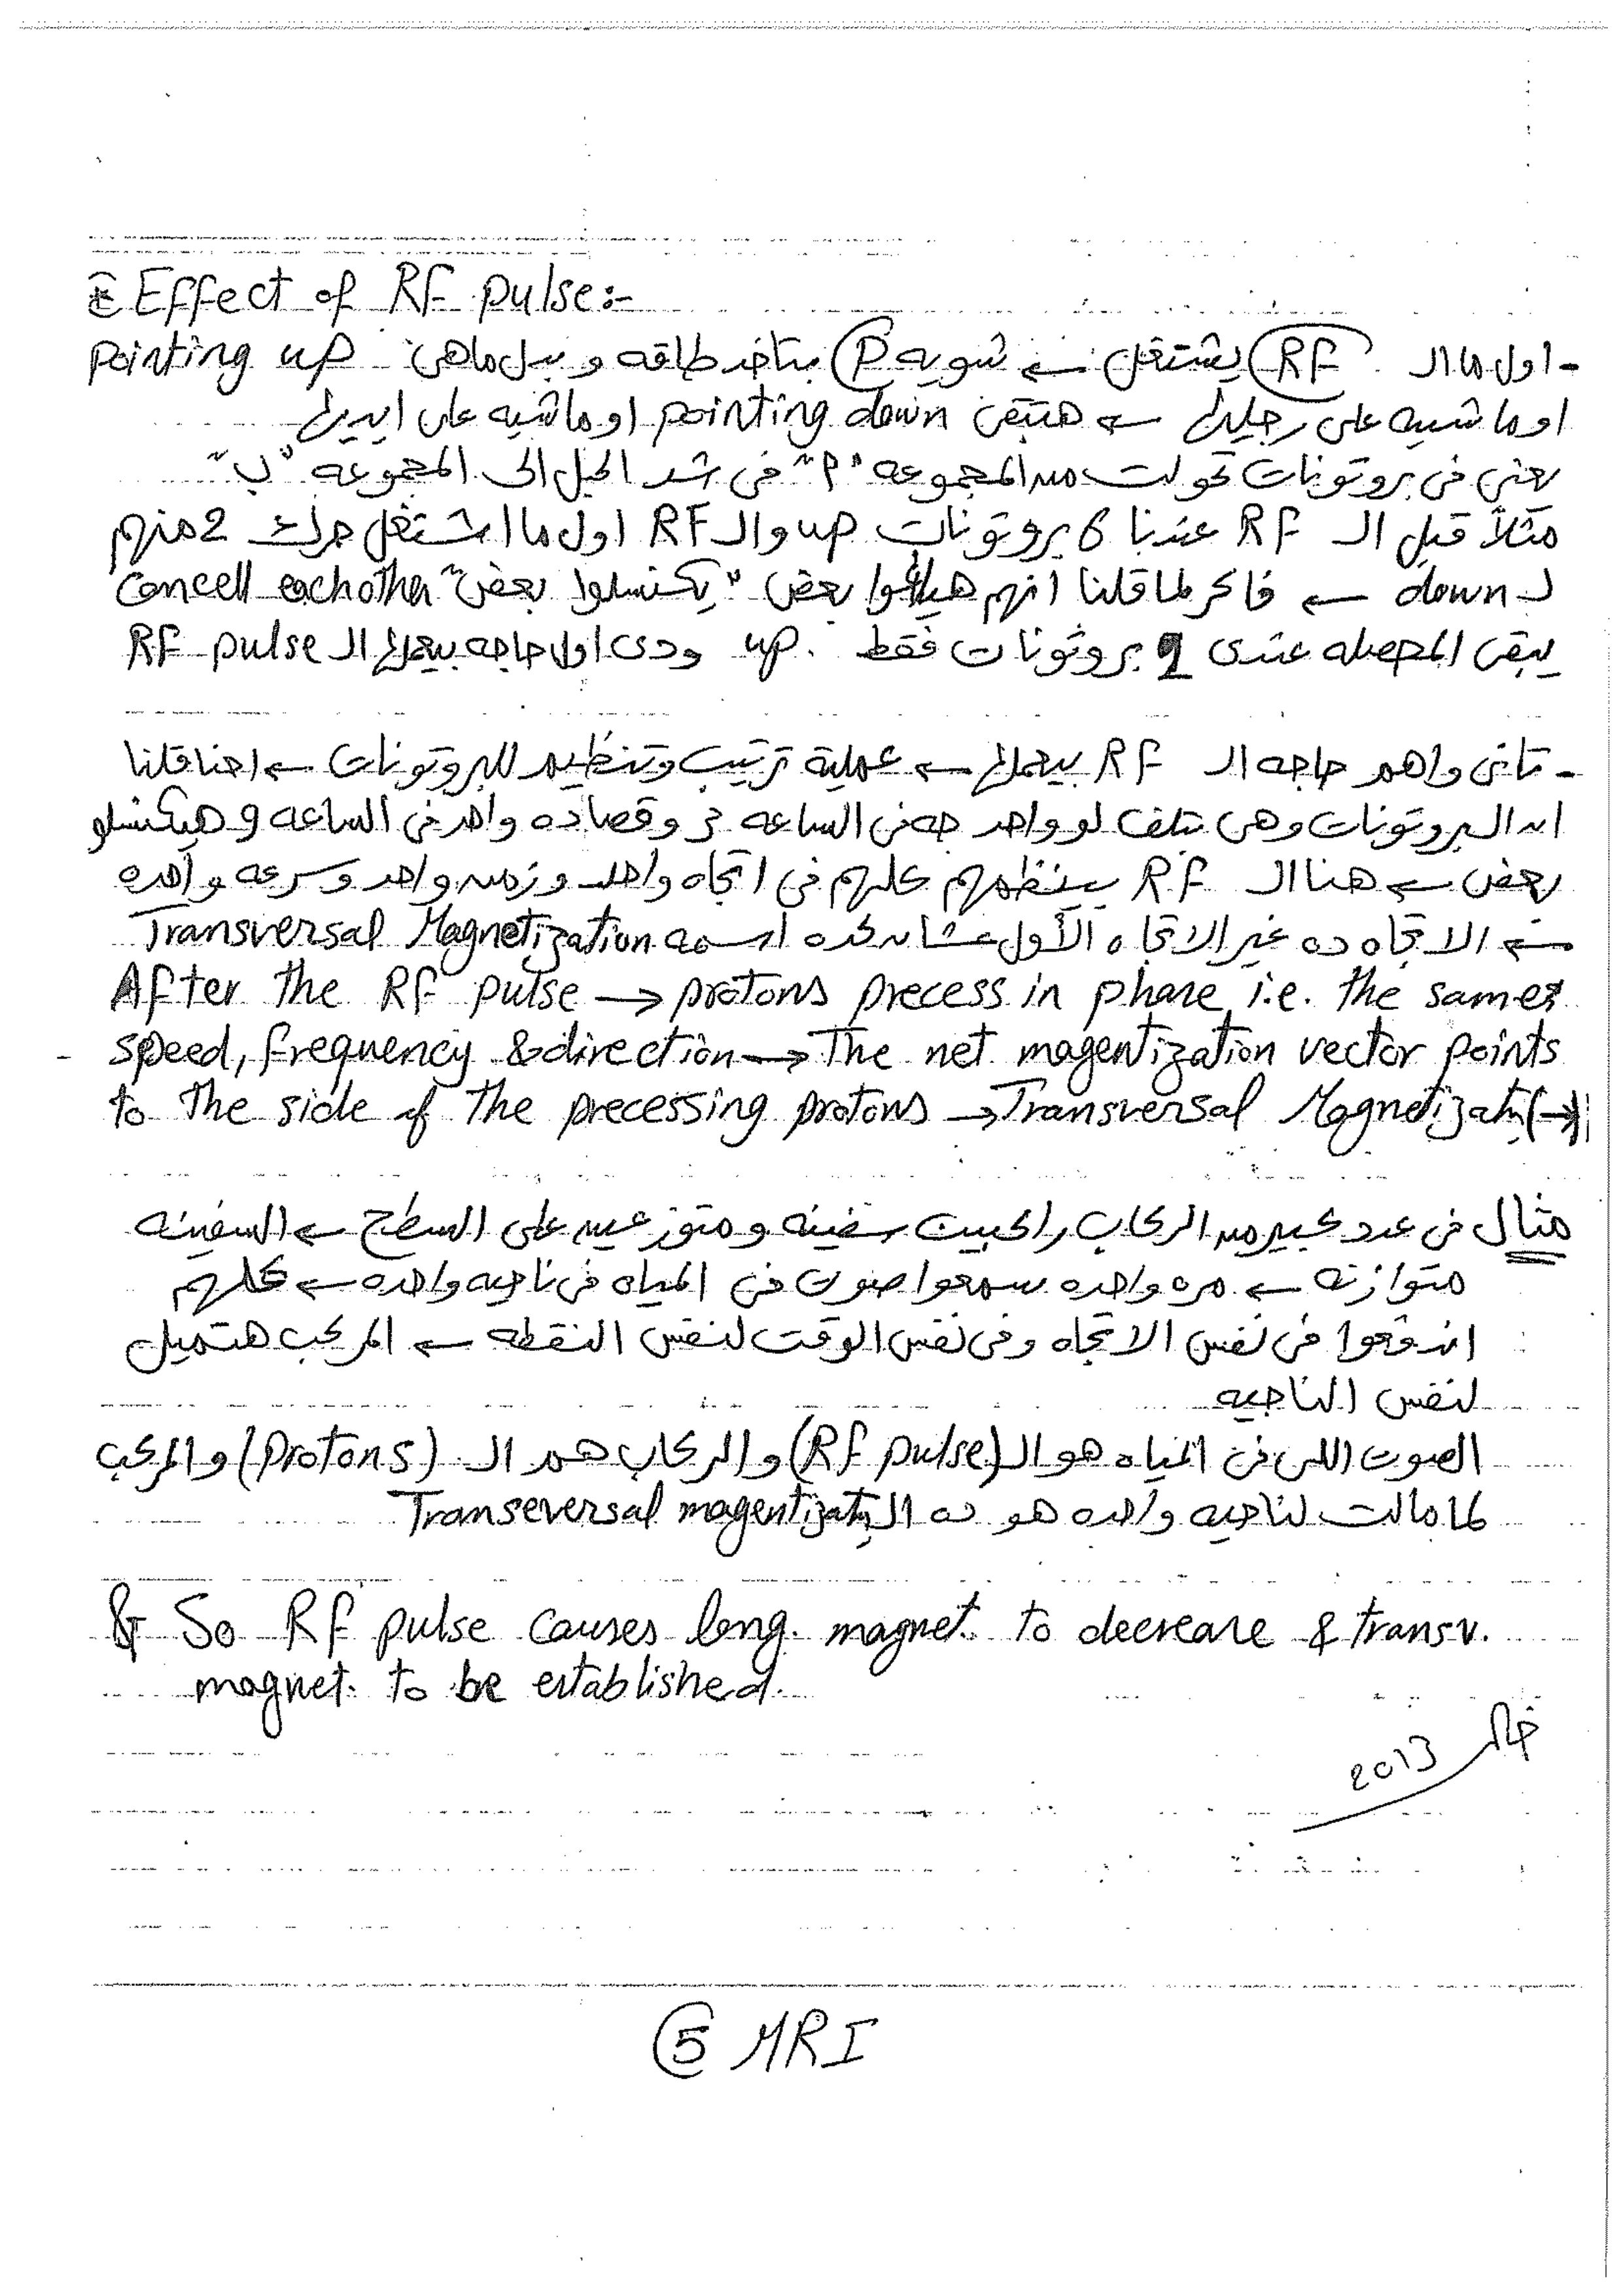 * Effect of RF pulse:-
- اول ما الـ RF يشتغل ← شويه P بتاخد طاقه وبدل ماهى pointing up
او ماشيه على رجليها ← هتبقى pointing down او ماشيه على ايديها
يعنى فى بروتونات تحولت من المجموعه "أ" فى شد الحبل الى المجموعه "ب"
مثلاً قبل الـ RF عندنا 6 بروتونات up والـ RF اول ما اشتغل حرك 2 منهم
لـ down ← فاكر لما قلنا انهم هيلاغوا بعض "يكنسلوا بعض" cancell eachother
يبقى المحصله عندى 2 بروتونات فقط up. ودى اول حاجه بيعملها الـ RF pulse
- تانى واهم حاجه الـ RF بيعملها ← عملية ترتيب وتنظيم للبروتونات ← احنا قلنا
ان البروتونات وهى بتلف لو واحد جه فى الساعه 3 وقصاده واحد فى الساعه 9 هيكنسلو
بعض ← هنا الـ RF بينظمهم كلهم فى اتجاه واحد وزمن واحد وسرعه واحده
← الاتجاه ده غير الاتجاه الأول عشان كده اسمه Transversal Magnetization
After the RF pulse → protons precess in phase i.e. the same
speed, frequency & direction → The net magentization vector points
to the side of the precessing protons → Transversal Magnetizatn (→)
مثال فى عدد كبير من الركاب راكبين سفينه ومتوزعين على السطح ← السفينه
متوازنه ← مره واحده سمعوا صوت فى المياه فى ناحيه واحده ← كلهم
اندفعوا فى نفس الاتجاه وفى نفس الوقت لنفس النقطه ← المركب هتميل
لنفس الناحيه
الصوت اللى فى المياه هو الـ (RF pulse) والركاب هم الـ (Protons) والمركب
لما مالت لناحيه واحده هو ده الـ Transeversal magentizatn
& So RF pulse causes long. magnet. to decrease & transv.
magnet. to be established.
2013
5 MRI